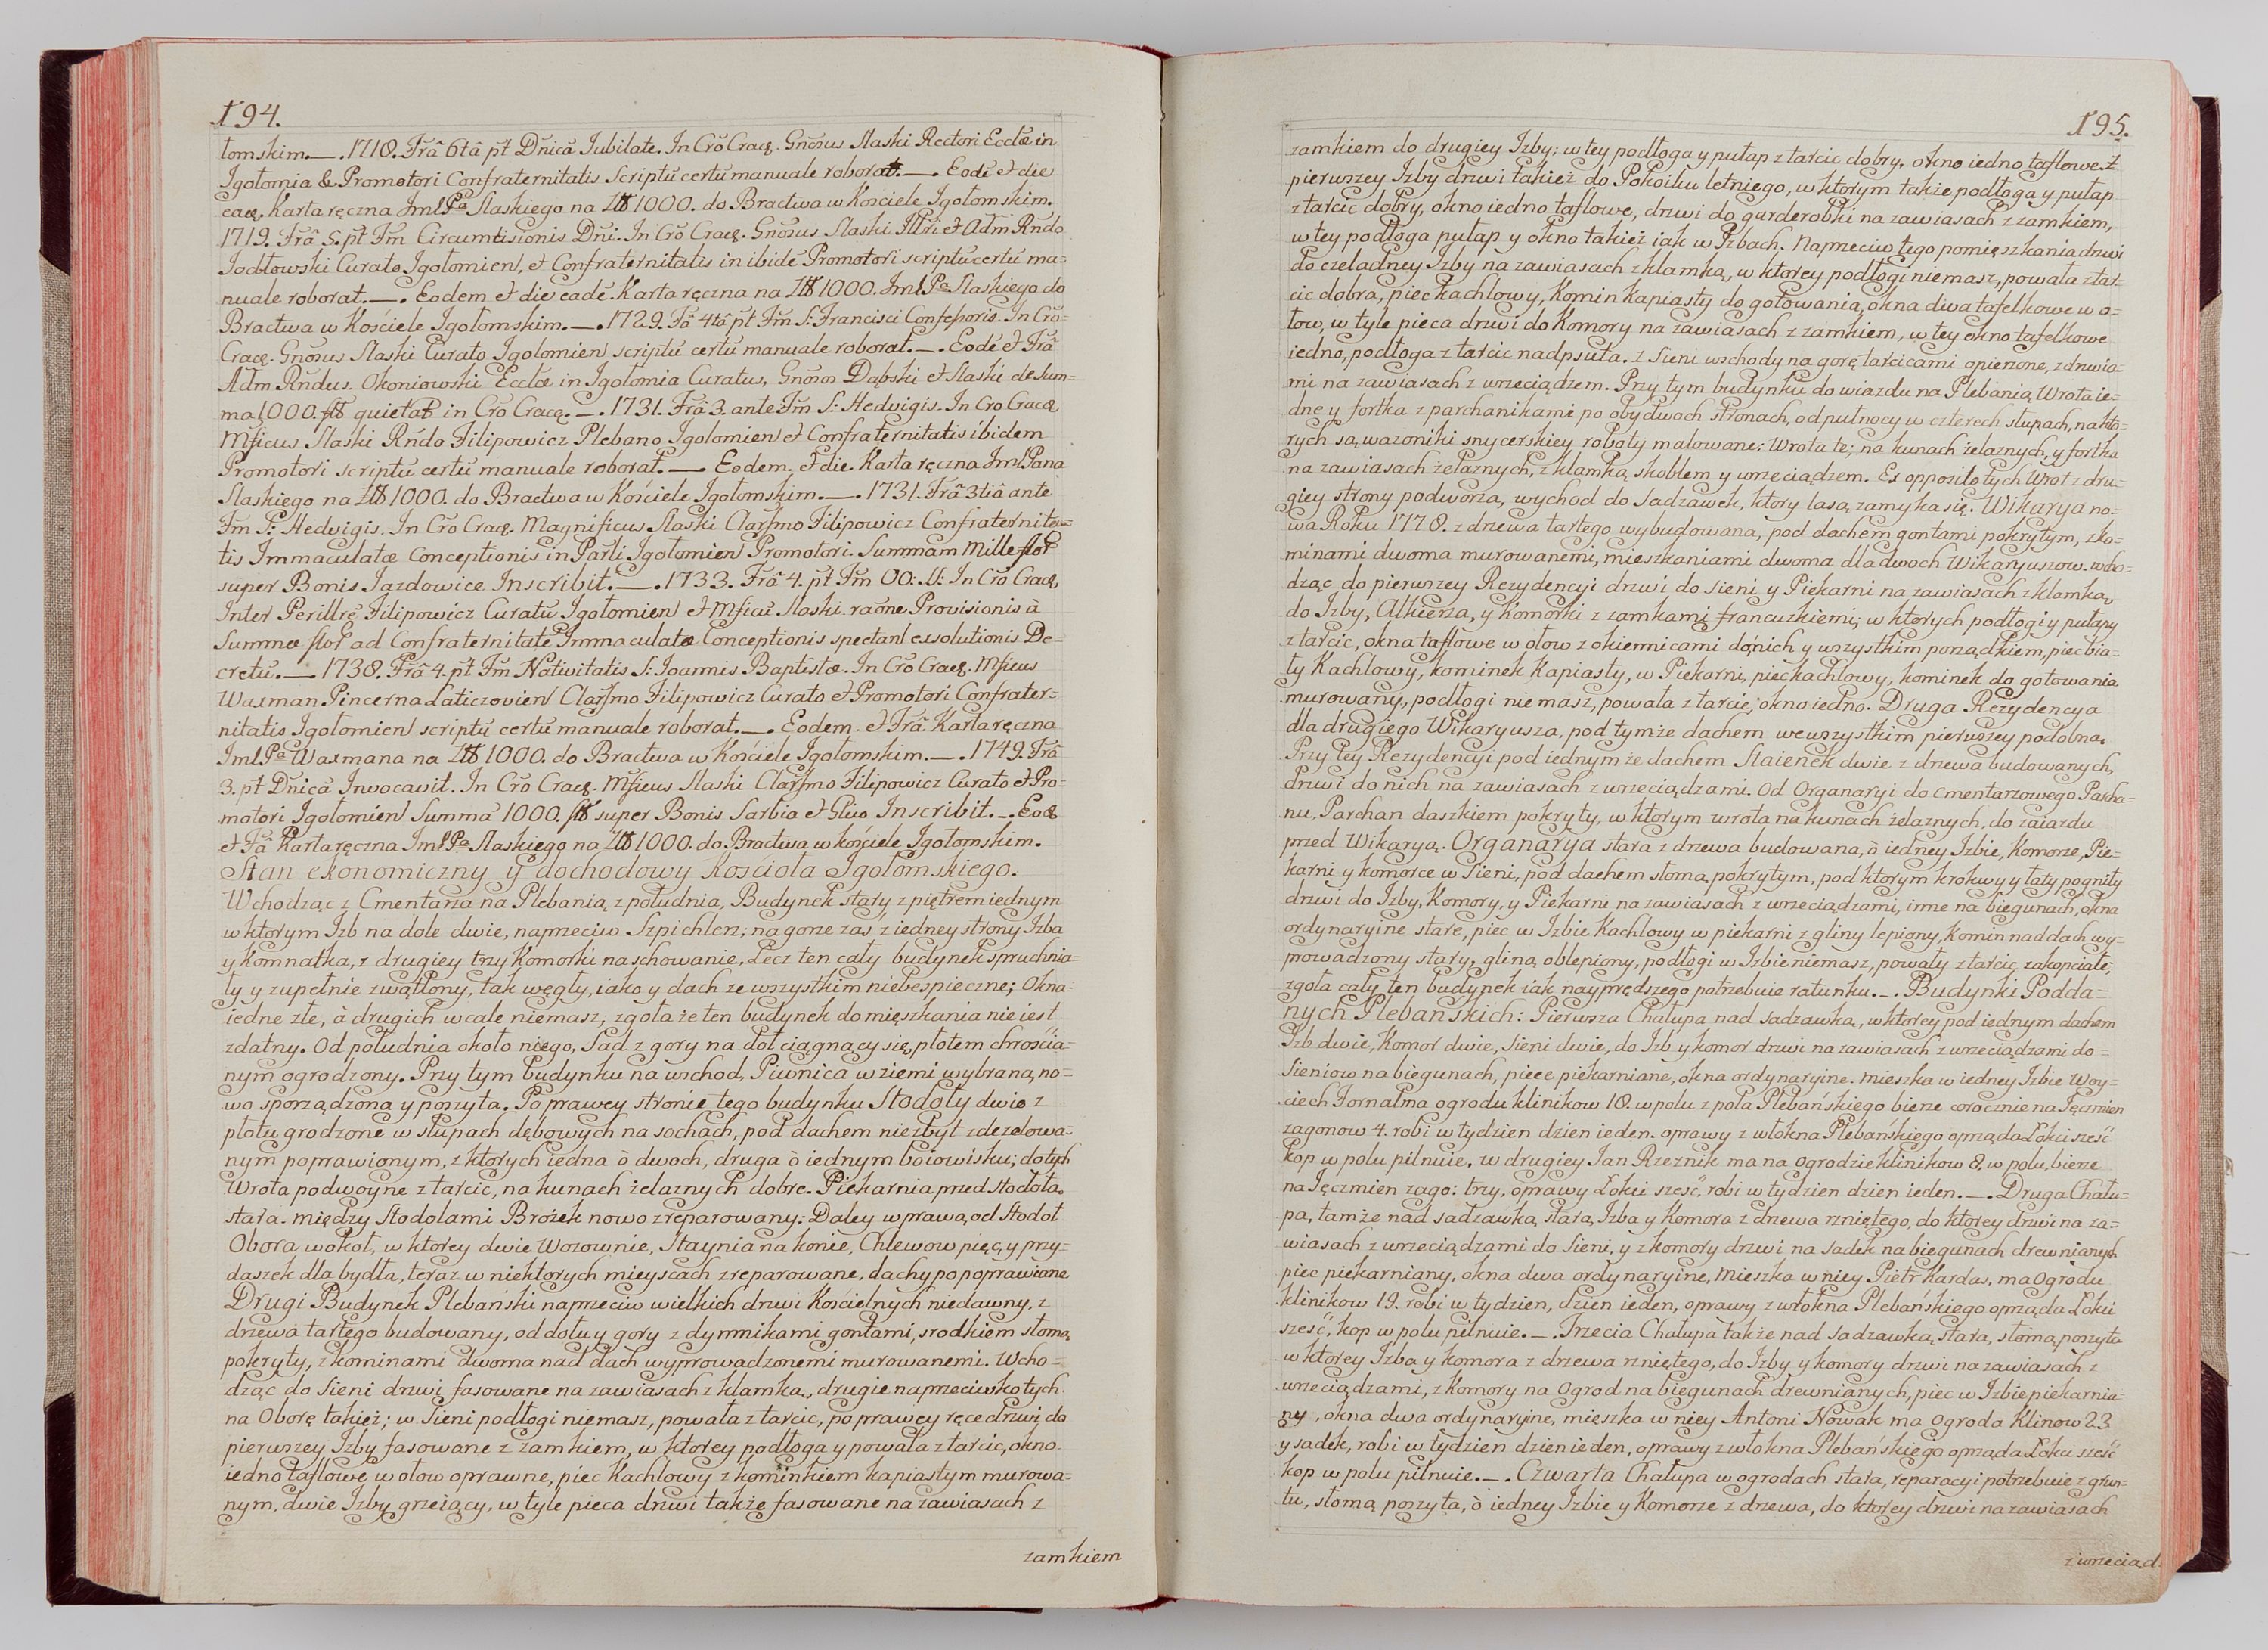 194.
tomskim.—.1718. Frâ 6tâ pt Dnicā Jubilate. In Crō Cracꝫ. Gnōsus Slaski Rectori Ecclæ in
Igołomia & Promotori Confraternitatis Scriptū certū manuale roborat.—. Eodē et die
eaꝫ. Karta ręczna JmlPa Slaskiego na 1000. do Bractwa w Kościele Igołomskim.
1719. Frâ 5. pt Fm Circumcisionis Dni. In Crō Cracꝫ. Gnōsus Slaski Illri et Adm Rndo
Jodłowski Curato Igołomien, et Confraternitatis in ibidē Promotori scriptū certū ma=
nuale roborat.—. Eodem et die eadē. Karta ręczna na 1000. JmlPa Slaskiego do
Bractwa w Kościele Igołomskim.—.1729. Fâ 4tâ pt Fm S: Francisci Confessoris. In Crō=
Cracꝫ. Gnōsus Slaski Curato Igolomien scriptū certū manuale roborat.—. Eodē et Frâ
Adm Rndus. Okoniowski Ecclæ in Igołomia Curatus, Gnōsos Dąbski et Slaski de Sum=
ma 1000. quietat in Crō Cracꝫ.—.1731. Frâ 3. ante Fm S: Hedvigis. In Cro Cracꝫ
Mficus Slaski Rndo Filipowicz Plebano Igolomien et Confraternitatis ibidem
Promotori scriptū certū manuale roborat.— Eodem. et die. Karta ręczna JmlPana
Slaskiego na 1000. do Bractwa w Kościele Igołomskim.—.1731. Frâ 3tiâ ante
Fm S: Hedvigis. In Crō Cracꝫ. Magnificus Slaski Clarssmo Filipowicz Confraternita=
tis Immaculatæ Conceptionis in Parli Igołomien Promotori. Summam Mille flor
super Bonis Jazdowice Inscribit.—.1733. Frâ 4. pt Fm OO: SS: In Crō Cracꝫ,
Inter Perillrē Filipowicz Curatū Igołomien et Mficū Slaski. raōne Provisionis à
Summæ flor ad Confraternitatē Immaculatæ Conceptionis spectan exsolutionis De=
cretū.—. 1738. Frâ 4. pt Fm Nativitatis S: Joannis Baptistæ. In Crō Cracꝫ. Mficus
Waxman Pincerna Laticzovien Clarssmo Filipowicz Curato et Promotori Confrater=
nitatis Igołomien scriptū certū manuale roborat.—. Eodem. et Frâ. Karta ręczna
JmlPa Waxmana na 1000. do Bractwa w Kościele Igołomskim.—.1749. Frâ
3. pt Dnicā Invocavit. In Crō Cracꝫ. Mficus Slaski Clarssmo Filipowicz Curato et Pro=
motori Igołomien Summā 1000. super Bonis Sarbia et Glew Inscribit.—. Eoꝫ
et Fâ Karta ręczna JmlPa Slaskiego na 1000. do Bractwa w kościele Igołomskim.
Stan ekonomiczny ÿ dochodowy Kościoła Igołomskiego.
Wchodząc z Cmentarza na Plebanią z południa, Budynek stary z piętrem iednym
w ktorym Izb na dole dwie, naprzeciw Szpichlerz; na gorze zaś z iedney strony Izba
y Komnatka, z drugiey trzy Komorki na schowanie, Lecz ten cały budynek spruchnia=
ły y zupełnie zwątlony, tak węgły, iako y dach ze wszystkim niebespieczne; Okna
iedne złe, à drugich wcale niemasz, zgoła że ten budynek do mięszkania nie iest
zdatny. Od południa około niego, Sad z gory na doł ciągnący się, płotem chrościa=
nym ogrodzony. Przy tym budynku na wschod, Piwnica w ziemi wybrana, no=
wo sporządzona y poszyta. Po prawey stronie tego budynku Stodoły dwie z
płotu grodzone w słupach dębowych na sochach, pod dachem niezbyt zdezelowa=
nym poprawionym, z ktorych iedna ò dwoch, druga ò iednym boiowisku; do tych
Wrota podwoyne z tarcic, na kunach żelaznych dobre. Piekarnia przed Stodołą
stara. między Stodolami Brożek nowo zreparowany: Daley w prawą od Stodoł
Obora wokoł, w ktorey dwie Wozownie, Staynia na konie, Chlewow pięć, y przy=
daszek dla bydła, teraz w niektorych mieyscach zreparowane, dachy popoprawiane
Drugi Budynek Plebański naprzeciw wielkich drzwi Kościelnych niedawny, z
drzewa tartego budowany, od dołu y gory z dymnikami, gontami, srodkiem słomą
pokryty, z kominami dwoma nad dach wyprowadzonemi murowanemi. Wcho=
dząc do Sieni drzwi fasowane na zawiasach z klamką, drugie naprzeciwko tych
na Oborę takież; w Sieni podłogi niemasz, powała z tarcic, po prawey ręce drzwi do
pierwszey Izby fasowane z zamkiem, w ktorey podłoga y powała z tarcic, okno
iedno taflowe w ołow oprawne, piec Kachlowy z kominkiem kapiastym murowa=
nym, dwie Izby grzeiący, w tyle pieca drzwi także fasowane na zawiasach z
zamkiem
195.
zamkiem do drugiey Izby; w tey podłoga y pułap z tarcic dobry. okno iedno taflowe. z
pierwszey Izby drzwi takież do Pokoiku letniego, w ktorym także podłoga y pułap
z tarcic dobry, okno iedno taflowe, drzwi do garderobki na zawiasach z zamkiem,
w tey podłoga pułap y okno takież iak w Izbach. Naprzeciw tego pomięszkania drzwi
do czeladney Izby na zawiasach z klamką, w ktorey podłogi niemasz, powała z tar=
cic dobra, piec kachlowy, Komin Kapiasty do gotowania, okna dwa tafelkowe w o=
łow, w tyle pieca drzwi do Komory na zawiasach z zamkiem, w tey okno tafelkowe
iedno, podłoga z tarcic nadpsuta. z Sieni wschody na gorę tarcicami opierzone, z drzwia=
mi na zawiasach z wrzeciądzem. Przy tym budynku do wiazdu na Plebanią Wrota ie=
dne y fortka z parchanikami po obydwoch stronach, od pułnocy w czterech słupach, na kto=
rych są wazoniki snycerskiey roboty malowane: Wrota te; na kunach żelaznych, y fortka
na zawiasach żelaznych, z klamką skoblem y wrzeciądzem. Ex opposito tych Wrot z dru=
giey strony podworza, wychod do Sadzawek, ktory lasą zamyka się. Wikarya no=
wa Roku 1778. z drzewa tartego wybudowana, pod dachem gontami pokrytym, z ko=
minami dwoma murowanemi, mieszkaniami dwoma dla dwoch Wikaryuszow. wcho=
dząc do pierwszey Rezydencyi drzwi do Sieni y Piekarni na zawiasach z klamką,
do Izby, Alkierza, y Komorki z zamkami francuzkiemi; w ktorych podłogi y pułapy
z tarcic, okna taflowe w ołow z okiennicami do nich y wszystkim porządkiem, piec bia=
ły Kachlowy, kominek Kapiasty, w Piekarni, piec kachlowy, kominek do gotowania
murowany, podłogi niemasz, powała z tarcic, okno iedno. Druga Rezydencya
dla drugiego Wikaryusza, pod tymże dachem we wszystkim pierwszey podobna.
Przy tey Rezydencyi pod iednymże dachem Staienek dwie z drzewa budowanych,
drzwi do nich na zawiasach z wrzeciądzami. Od Organaryi do Cmentarzowego Parcha=
nu, Parchan daszkiem pokryty, w ktorym wrota na kunach żelaznych, do zaiazdu
przed Wikaryą. Organarya stara z drzewa budowana, ò iedney Izbie, Komorze, Pie=
karni y komorce w Sieni, pod dachem słomą pokrytym, pod ktorym krokwy y łaty pogniły
drzwi do Izby, Komory, y Piekarni na zawiasach z wrzeciądzami, inne na biegunach, okna
ordynaryine stare, piec w Izbie Kachlowy w piekarni z gliny lepiony, Komin nad dach wy=
prowadzony stary, gliną oblepiony, podłogi w Izbie niemasz, powały z tarcic zakopciałe,
zgoła cały ten budynek iak nayprędszego potrzebuie ratunku.—. Budynki Podda=
nych Plebańskich: Pierwsza Chałupa nad sadzawką, w ktorey pod iednym dachem
Izb dwie, Komor dwie, Sieni dwie, do Izb y komor drzwi na zawiasach z wrzeciądzami do=
Sieniow na biegunach, piece piekarniane, okna ordynaryine. mieszka w iedney Izbie Woy=
ciech Fornal ma ogrodu klinikow 18. w polu z pola Plebańskiego bierze corocznie na Jęczmien
zagonow 4. robi w tydzien dzien ieden. oprawy z włokna Plebańskiego oprząda Łokci sześć
kop w polu pilnuie. w drugiey Jan Rzeznik ma na Ogrodzie klinikow 8. w polu, bierze
na Jęczmien zago: trzy, oprawy Łokci sześć. robi w tydzien dzien ieden.—. Druga Chału=
pa, tamże nad sadzawką stara, Izba y Komora z drzewa rzniętego, do ktorey drzwi na za=
wiasach z wrzeciądzami do Sieni, y z komory drzwi na sadek na biegunach drewnianych
piec piekarniany, okna dwa ordynaryine, Mieszka w niey Pietr Kardas, ma Ogrodu
klinikow 19. robi w tydzien, dzien ieden, oprawy z włokna Plebańskiego oprząda Łokci
sześć, kop w polu pilnuie.—. Trzecia Chałupa także nad sadzawką stara, słomą poszyta
w ktorey Izba y komora z drzewa rzniętego, do Izby y komory drzwi na zawiasach z
wrzeciądzami, z Komory na Ogrod na biegunach drewnianych, piec w Izbie piekarnia=
ny, okna dwa ordynaryjne, mięszka w niey Antoni Nowak ma Ogroda Klinow 23
y sadek, robi w tydzien dzien ieden, oprawy z włokna Plebańskiego oprząda Łokci sześć
kop w polu pilnuie.—. Czwarta Chałupa w ogrodach stara, reparacyi potrzebuie z grun=
tu, słomą poszyta, ò iedney Izbie y Komorze z drzewa, do ktorey drzwi na zawiasach
z wrzeciąd.